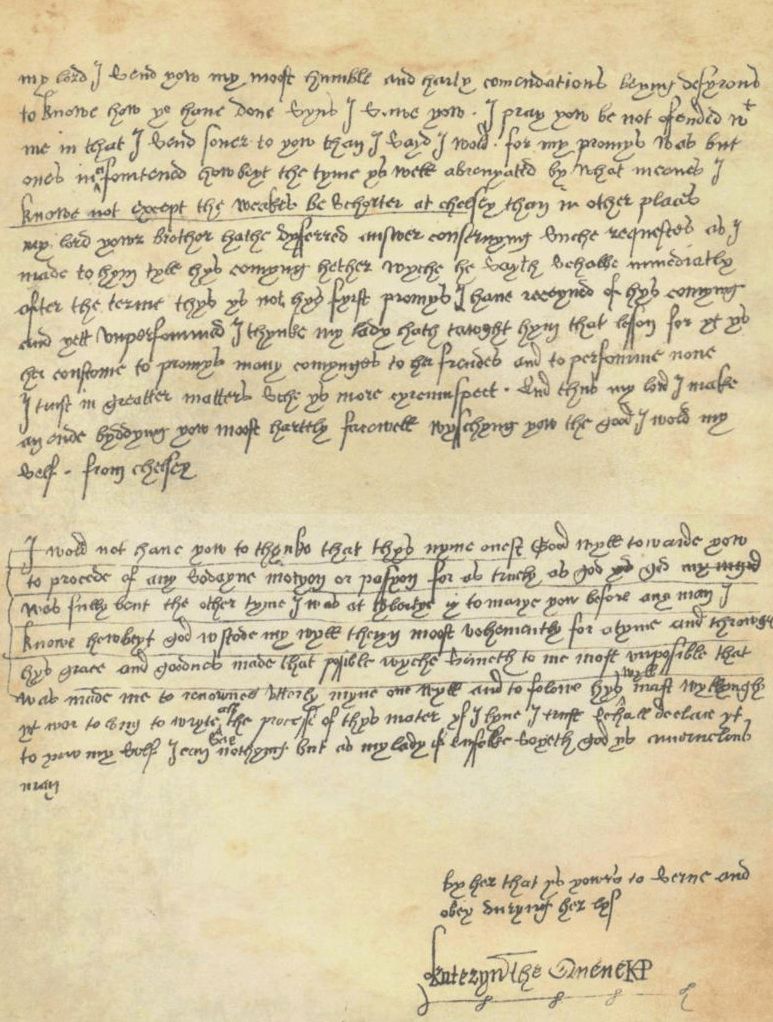 my lord J send yow my most humble and harty comendations beyng desyrous
to knowe how ye haue done syns J sawe yow . J pray yow be not ofended wt
me in that J send soner to yow than J sayd J wold . for my promys was but
ones in a fortened howbeyt the tyme ys well abreuyated by what meanes J
knowe not except the weakes be schorter at chelsey than in other places
my lord yowr brother hathe dyfferred answer conserning suche requestes as J
made to hym tyll hys comyng hether wyche he sayth schalbe immediatly
after the terme thys ys not hys fyrst promys J haue receyued of hys comyng
and yett unperfourmed J thynke my lady hath taught hym that lesson for yt ys
her coustome to promys many comynges to her frendes and to perfourme none
J trust in greatter matters sche ys more cyrcumspect . And thus my lord J make
an ende byddyng yow most hartely farewell wysschyng yow the good J wold my
self . from chelsey
J wold not haue yow to thynke that thys myne onest good wyll towarde yow
to procede of any sodayne motyon or passyon for as truely as god ys god my mynd
was fully bent the other tyme J was at lybertye to marye yow before any man J
knowe howbeyt god wstode my wyll theryn most vehemently for a tyme and through
hys grace and goodnes made that possible wyche semeth to me most unpossible that
was made me to renownce utterly myne one wyll and to folowe hys wyll most wyllyngly
yt wer to long to wryte all the processe of thys mater yf J lyue J trust schall declare yt
to yow my self J can say nothyng but as my lady of suffolke sayeth god ys a marvelous
man
by her that ys yowrs to serue and
obey duryng her lyf
Kateryn the Quene KP